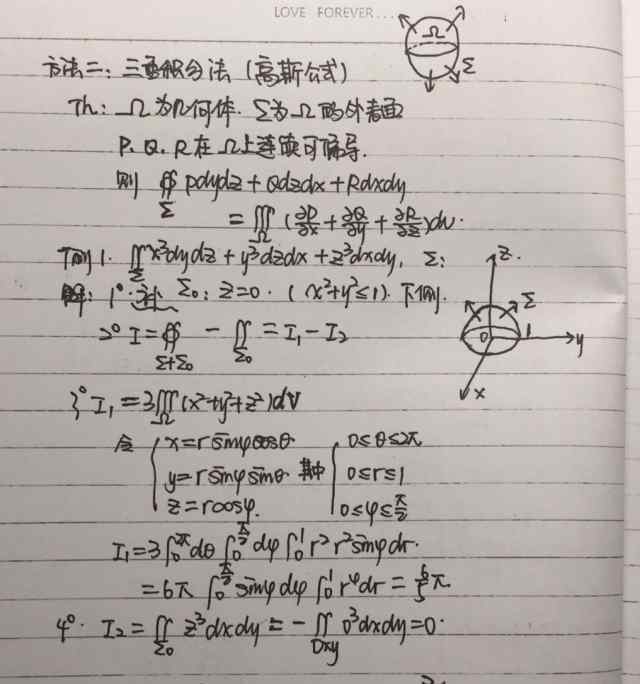 LOVE FOREVER...
Ω
Σ
方法二：三重积分法（高斯公式）
Th：Ω为几何体．Σ为Ω的外表面
P、Q、R在Ω上连续可偏导．
则 ∯_Σ Pdydz + Qdzdx + Rdxdy
= ∭_Ω (∂P/∂x + ∂Q/∂y + ∂R/∂z)dv．
例1. ∬_Σ x³dydz + y³dzdx + z³dxdy, Σ:
解：1° 补 Σ₀: z=0．(x²+y²≤1)．下侧．
2° I = ∯_{Σ+Σ₀} − ∬_{Σ₀} = I₁ − I₂
z
Σ
0 1 y
x
3° I₁ = 3∭_Ω (x²+y²+z²)dV
令 { x = r sinφ cosθ
y = r sinφ sinθ．
z = r cosφ．
其中 { 0≤θ≤2π
0≤r≤1
0≤φ≤π/2
I₁ = 3∫₀^{2π} dθ ∫₀^{π/2} dφ ∫₀¹ r² r² sinφ dr．
= 6π ∫₀^{π/2} sinφ dφ ∫₀¹ r⁴ dr = 6/5 π．
4°．I₂ = ∬_{Σ₀} z³dxdy = − ∬_{Dxy} 0³dxdy = 0．